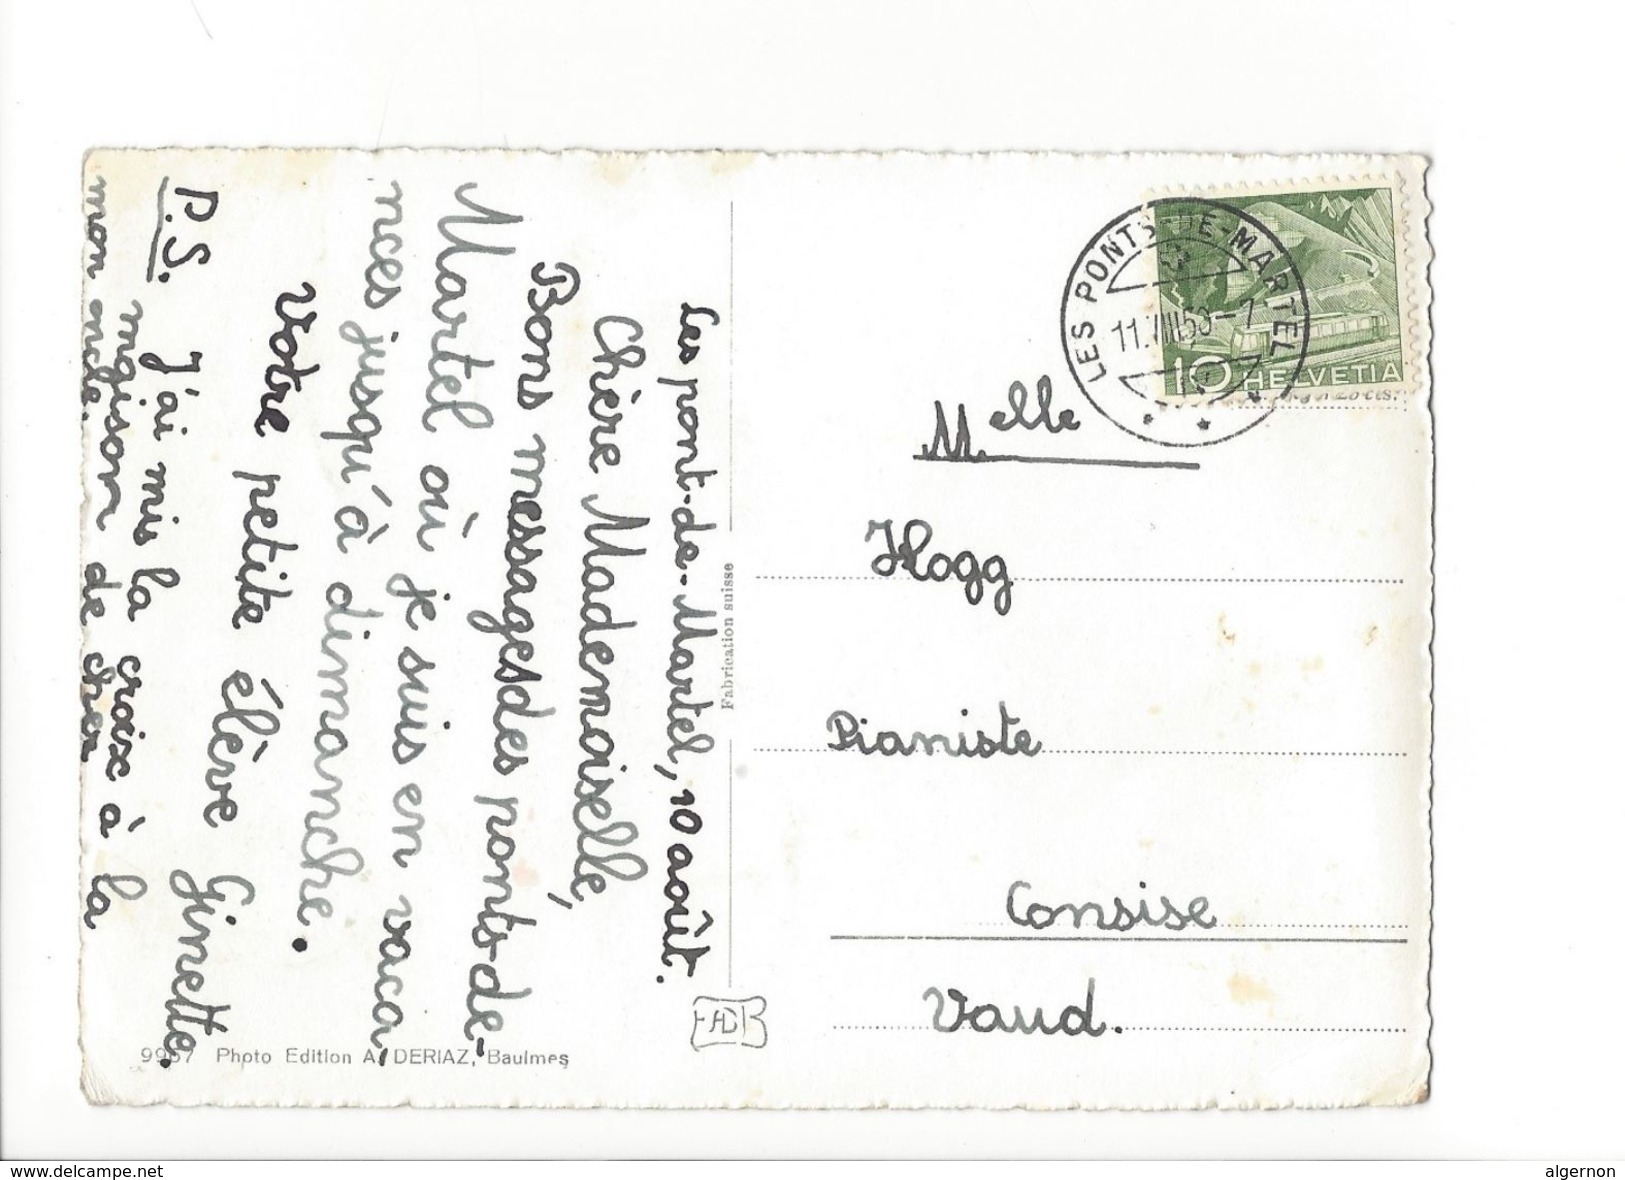 Les pont-de-Martel, 10 août.
Chère Mademoiselle,
Bons messages des ponts-de-
Martel où je suis en vacan
nces jusqu'à dimanche.
Votre petite élève Ginette.
P.S. J'ai mis la croix à la
maison de cher
mon oncle.
Fabrication suisse
9967 Photo Edition A. DERIAZ, Baulmes
LES PONTS-DE-MARTEL
10 HELVETIA
Melle
Hogg
Pianiste
Consise
Vaud.
www.delcampe.net
algernon